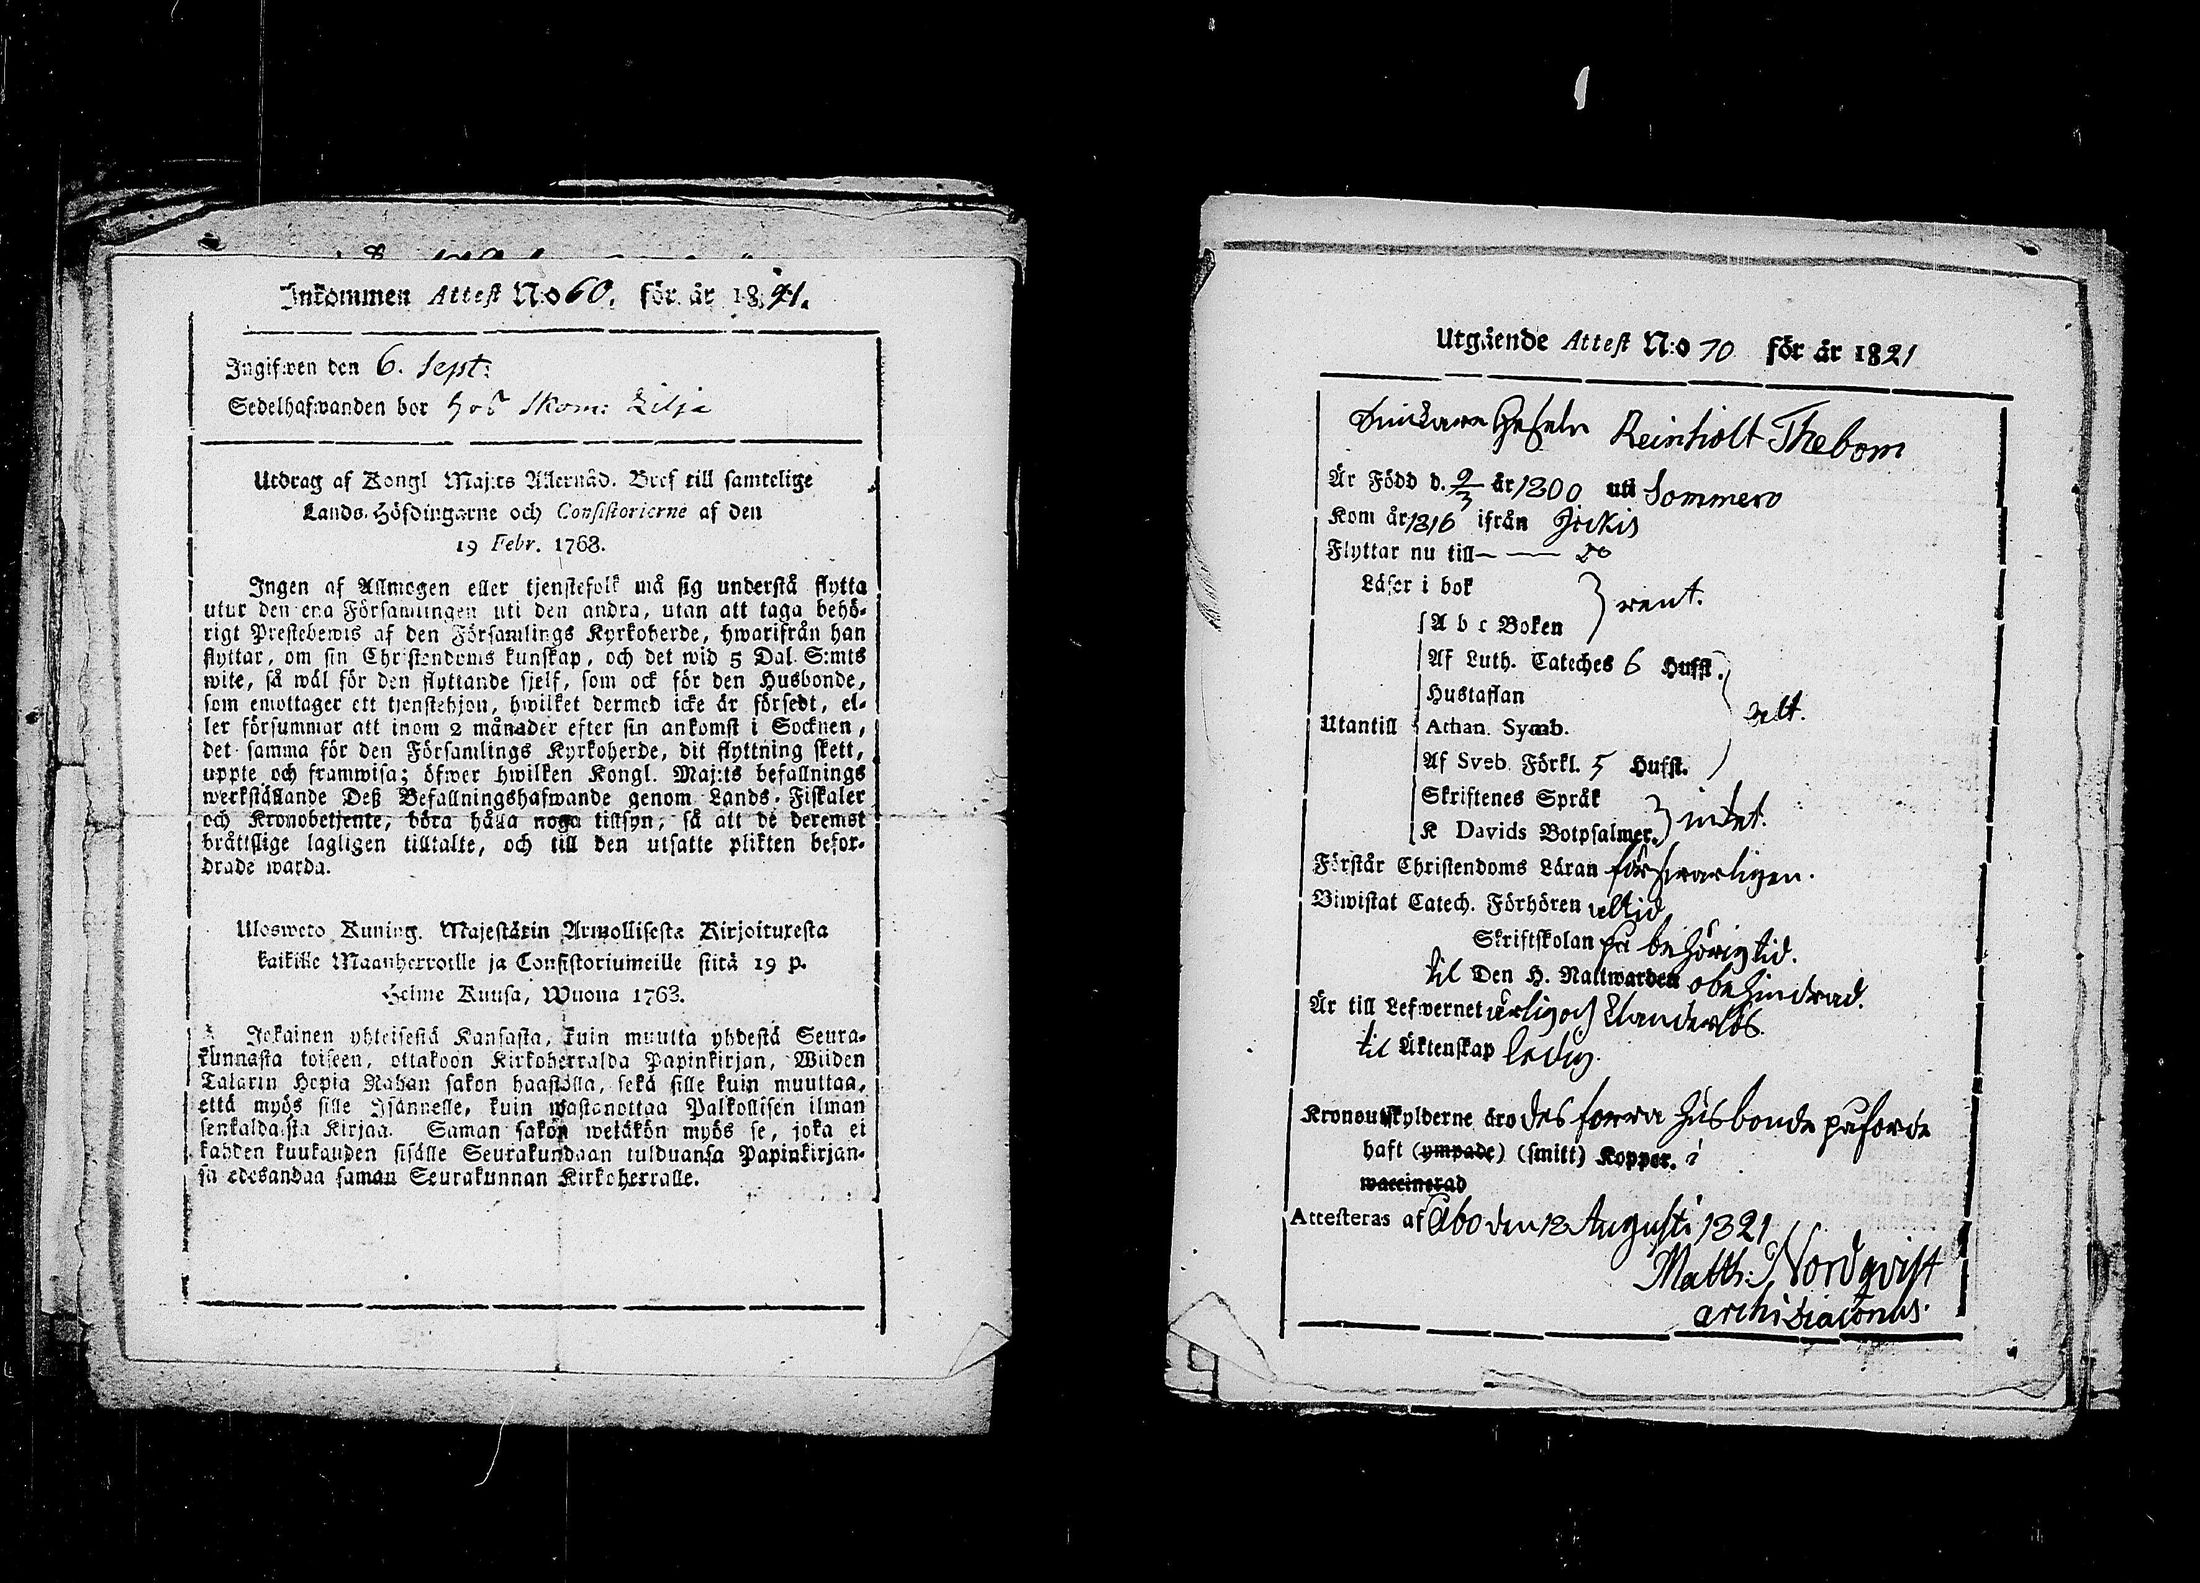 Inkommen Attest N:o 60. för år 1821.
Ingifwen den 6. Sept:
Sedelhafwanden bor hos Skom: Lilja
Utdrag af Kongl Maj:ts Allernåd. Bref till samtelige
Lands-Höfdingarne och Consistorierne af den
19 Febr. 1768.
Ingen af Allmogen eller tjenstefolk må sig understå flytta
utur den ena Församlingen uti den andra, utan att taga behö-
rigt Prestebewis af den Församlings Kyrkoherde, hwarifrån han
flyttar, om sin Christendoms kunskap, och det wid 5 Dal. S:mts
wite, så wäl för den flyttande sjelf, som ock för den Husbonde,
som emottager ett tjenstehjon, hwilket dermed icke är försedt, el-
ler försummar att inom 2 månader efter sin ankomst i Socknen,
det samma för den Församlings Kyrkoherde, dit flyttning skett,
uppte och framwisa; öfwer hwilken Kongl. Maj:ts befallnings
werkställande Deß Befallningshafwande genom Lands-Fiskaler
och Kronobetjente, böra hålla noga tillsyn, så att de deremot
bråttslige lagligen tilltalte, och till den utsatte plikten befor-
drade warda.
Ulosweto Kuning. Majestätin Armollisesta Kirjoituxesta
kaikille Maanherroille ja Consistoriumeille siitä 19 p.
Helme Kuusa, Wuona 1763.
Jokainen yhteisestä Kansasta, kuin muutta yhdestä Seura-
kunnasta toiseen, ottakoon Kirkoherralda Papinkirjan, Wiiden
Talarin Hopia Rahan sakon haastolla, sekä sille kuin muuttaa,
että myös sille Isännelle, kuin wastanottaa Palkollisen ilman
senkaldaista Kirjaa. Saman sakon wetäkön myös se, joka ei
kahden kuukauden sisälle Seurakundaan tulduansa Papinkirjan-
sa edesandaa saman Seurakunnan Kirkoherralle.
Utgående Attest N:o 70 för år 1821
Geseln Reinholt Thebom
Är Född d. 9/3 år 1800 uti Sommero
Kom år 1816 ifrån Jockis
Flyttar nu till — — do
Läser i bok
A b c Boken } rent.
Af Luth. Cateches 6 Hufst.
Hustaflan
Utantill Athan. Symb.
Af Sveb. Förkl. 5 Hufst.
Skriftenes Språk
K Davids Botpsalmer. } intet.
Förstår Christendoms Läran försvarligen.
Biwistat Catech. Förhören altid
Skriftskolan på behörig tid.
til Den H. Nattwarden obehindrad.
Är till Lefwernet ärlig och klanderlös.
til Äktenskap ledig.
Kronoutskylderne äro des förra husbonde påförde
haft (ympade) (smitt) Kopper.
waccinerad
Attesteras af Åbo den 12 Augusti 1821
Matth: Nordqvist
archi Diaconus.